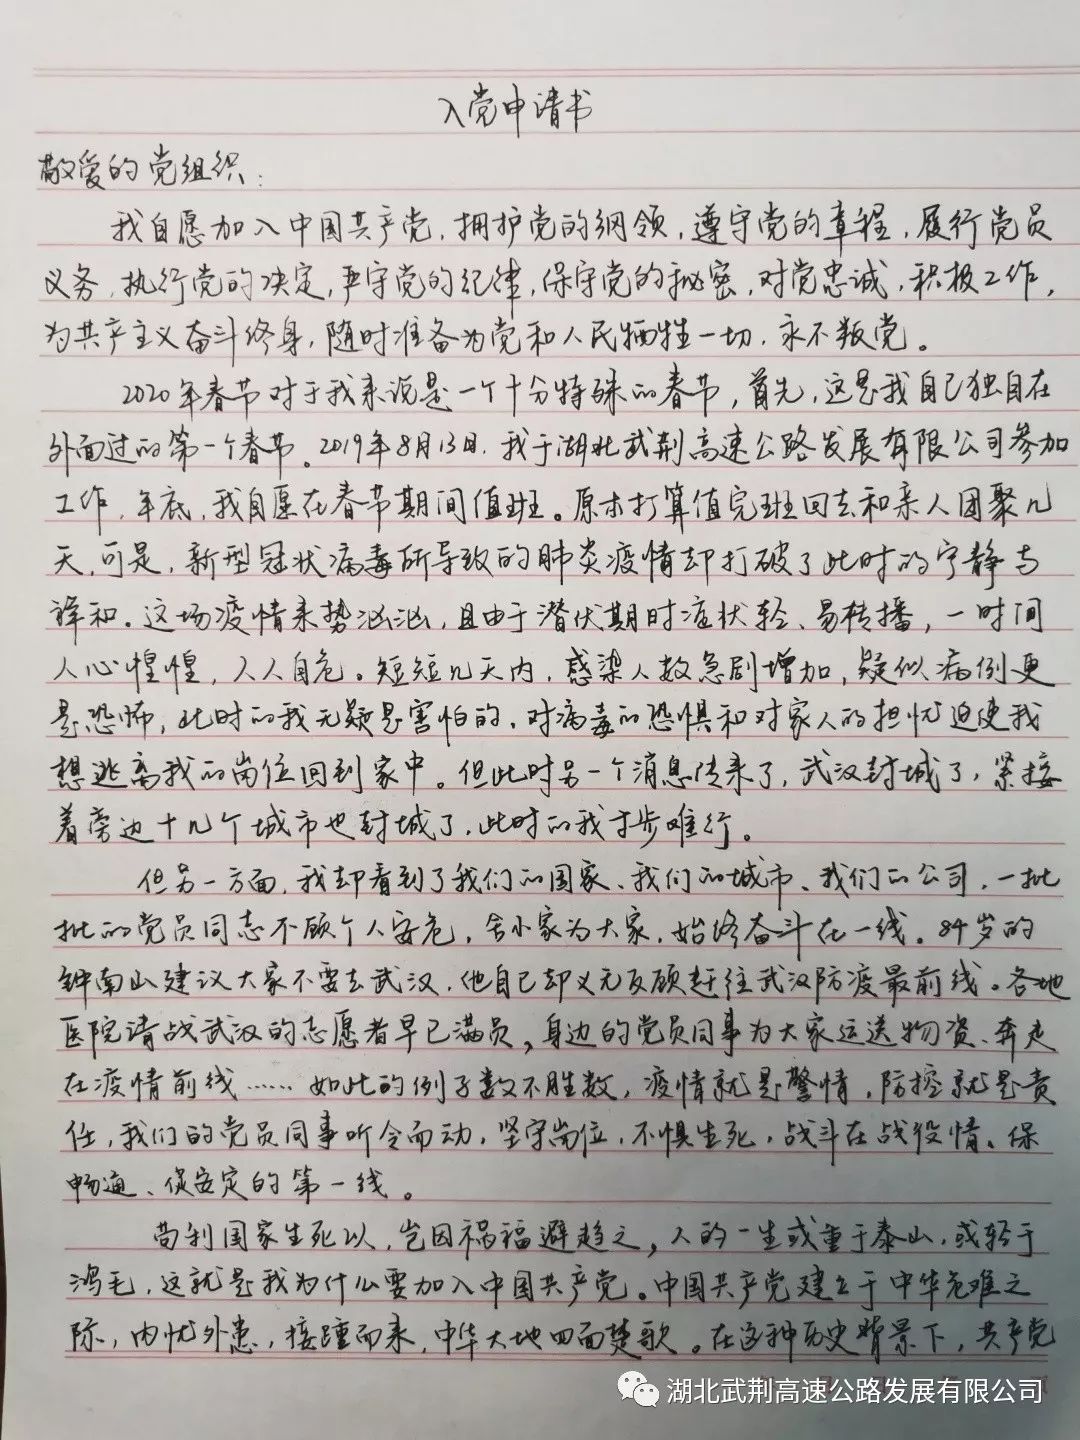 入党申请书
敬爱的党组织：
我自愿加入中国共产党，拥护党的纲领，遵守党的章程，履行党员
义务，执行党的决定，严守党的纪律，保守党的秘密，对党忠诚，积极工作，
为共产主义奋斗终身，随时准备为党和人民牺牲一切，永不叛党。
2020年春节对于我来说是一个十分特殊的春节，首先，这是我自己独自在
外面过的第一个春节。2019年8月13日，我于湖北武荆高速公路发展有限公司参加
工作，年底，我自愿在春节期间值班。原本打算值完班回去和亲人团聚几
天，可是，新型冠状病毒所导致的肺炎疫情却打破了此时的宁静与
祥和。这场疫情来势汹汹，且由于潜伏期时症状轻、易传播，一时间
人心惶惶，人人自危。短短几天内，感染人数急剧增加，疑似病例更
是恐怖，此时的我无疑是害怕的，对病毒的恐惧和对家人的担忧迫使我
想逃离我的岗位回到家中。但此时另一个消息传来了，武汉封城了，紧接
着旁边十几个城市也封城了，此时的我寸步难行。
但另一方面，我却看到了我们的国家、我们的城市、我们的公司，一批
批的党员同志不顾个人安危，舍小家为大家，始终奋斗在一线。84岁的
钟南山建议大家不要去武汉，他自己却义无反顾赶往武汉防疫最前线。各地
医院请战武汉的志愿者早已满员，身边的党员同事为大家运送物资、奔走
在疫情前线……如此的例子数不胜数，疫情就是警情，防控就是责
任，我们的党员同事听令而动，坚守岗位，不惧生死，战斗在战役情、保
畅通、促安定的第一线。
苟利国家生死以，岂因祸福避趋之，人的一生或重于泰山，或轻于
鸿毛，这就是我为什么要加入中国共产党。中国共产党建立于中华危难之
际，内忧外患，接踵而来，中华大地四面楚歌。在这种历史背景下，共产党
湖北武荆高速公路发展有限公司